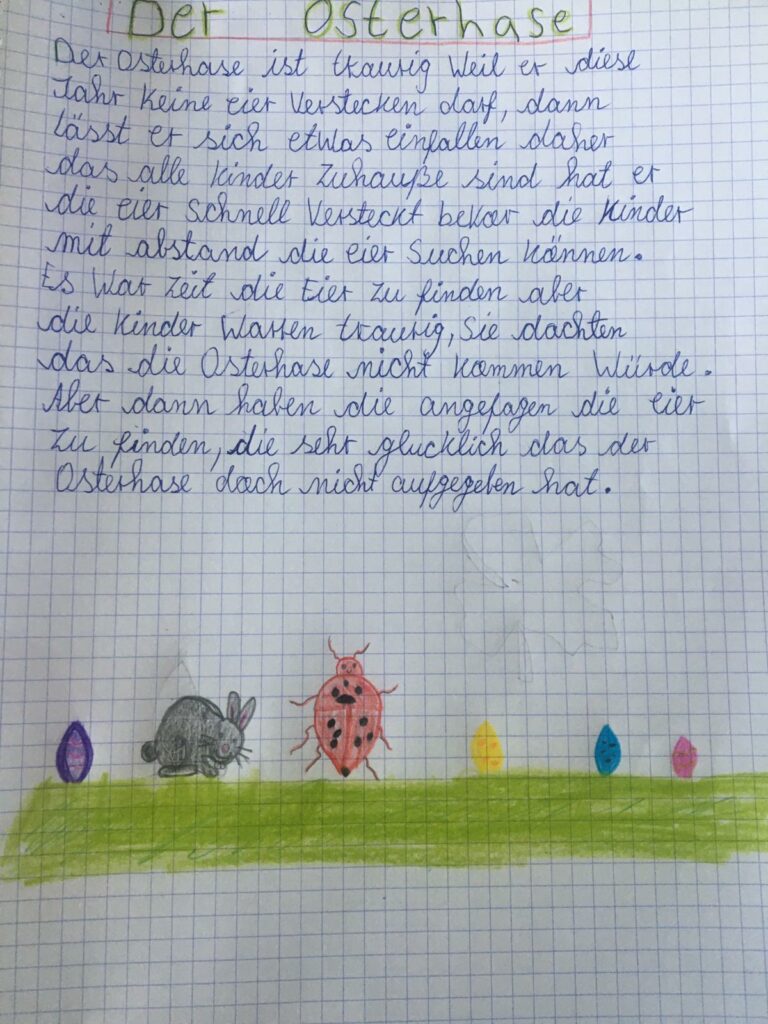 Der Osterhase
Der Osterhase ist traurig Weil er diese
Jahr Keine eier Verstecken darf, dann
lässt er sich etwas einfallen daher
das alle Kinder Zuhauße sind hat er
die eier Schnell Versteckt bevor die Kinder
mit abstand die eier Suchen können.
Es War Zeit die Eier Zu finden aber
die Kinder Warren traurig, Sie dachten
das die Osterhase nicht kommen Würde.
Aber dann haben die angefagen die eier
Zu finden, die sehr glucklich das der
Osterhase doch nicht aufgegeben hat.